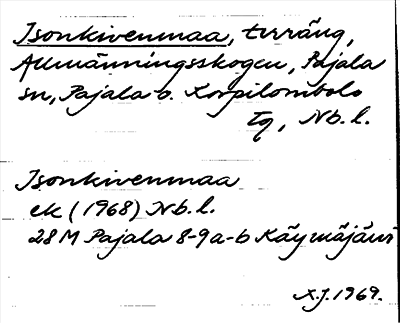 Isonkivenmaa, terräng,
Allmänningsskogen, Pajala
sn, Pajala o. Korpilombolo
tg, Nb. l.
Isonkivenmaa
ek (1968) Nb. l.
28 M Pajala 8-9 a-b Käymäjärvi
X.J. 1969.